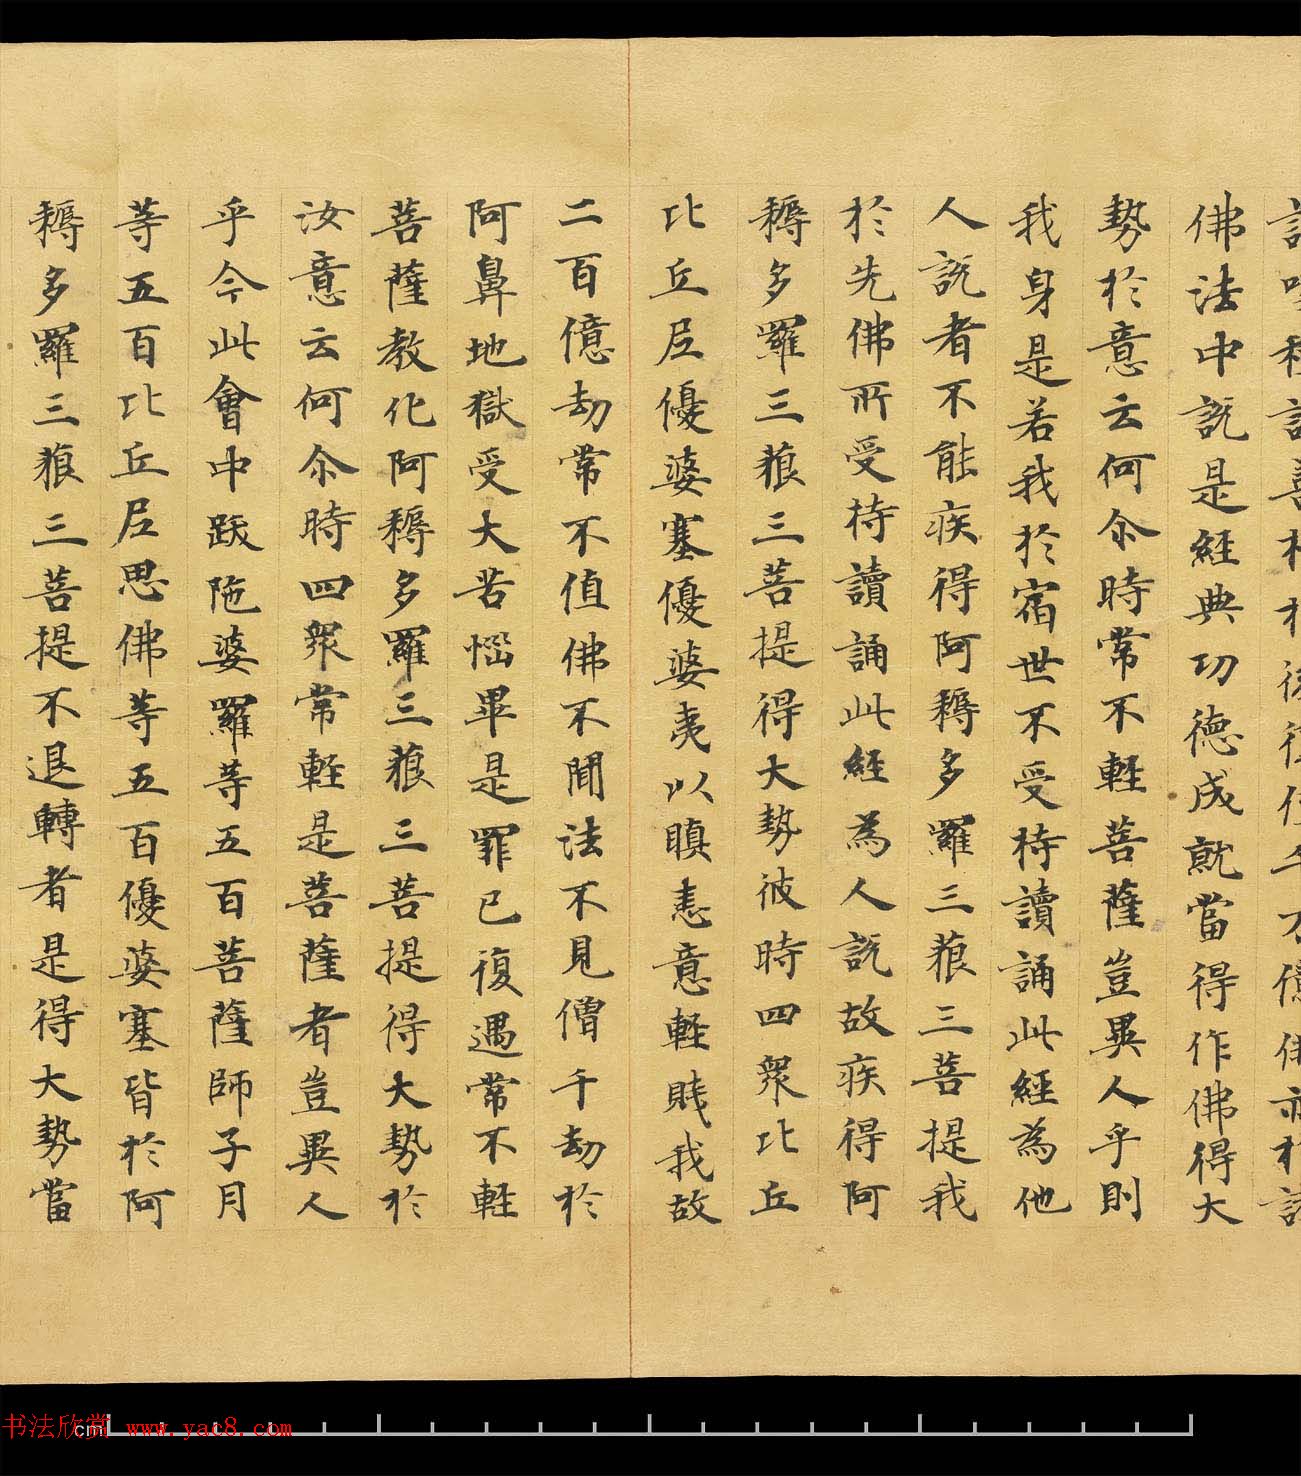 種諸善根於後復值千万億佛亦於諸
佛法中說是經典功德成就當得作佛得大
勢於意云何尒時常不輕菩薩豈異人乎則
我身是若我於宿世不受持讀誦此經為他
人說者不能疾得阿耨多羅三藐三菩提我
於先佛所受持讀誦此經為人說故疾得阿
耨多羅三藐三菩提得大勢彼時四衆比丘
比丘尼優婆塞優婆夷以瞋恚意輕賤我故
二百億劫常不值佛不聞法不見僧千劫於
阿鼻地獄受大苦惱畢是罪已復遇常不輕
菩薩教化阿耨多羅三藐三菩提得大勢於
汝意云何尒時四衆常輕是菩薩者豈異人
乎今此會中跋陁婆羅等五百菩薩師子月
等五百比丘尼思佛等五百優婆塞皆於阿
耨多羅三藐三菩提不退轉者是得大勢當
书法欣赏 www.yac8.com
cm